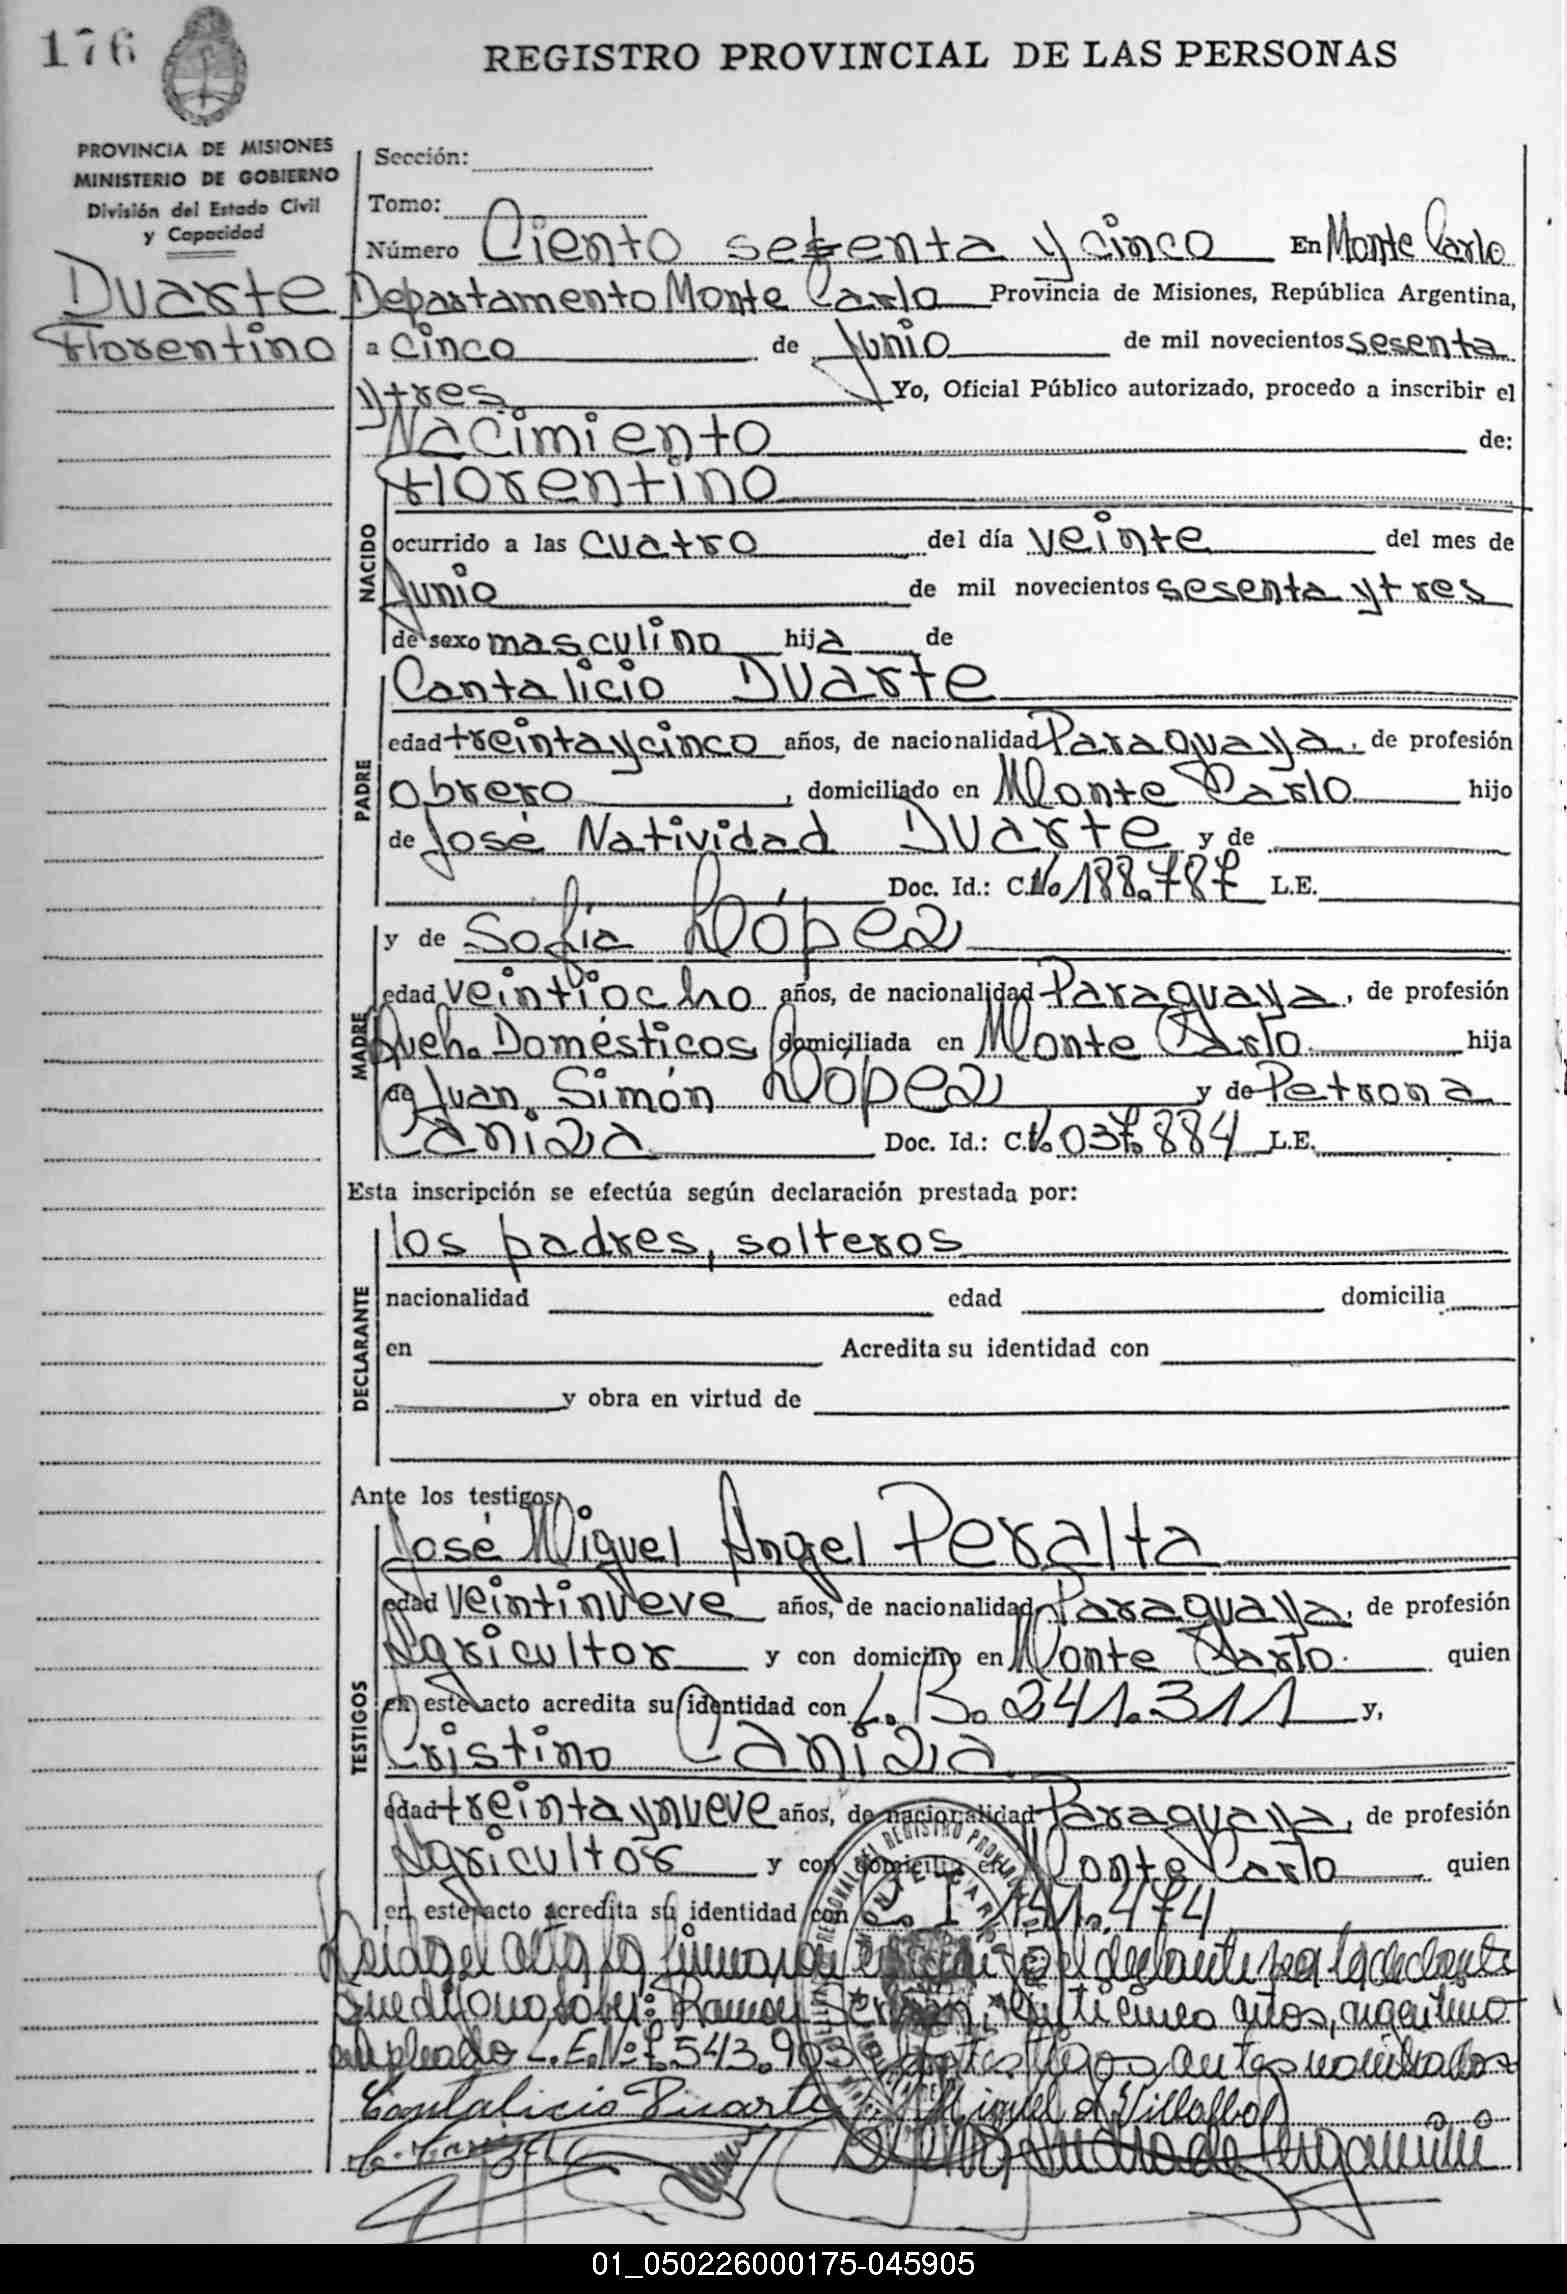 176
REGISTRO PROVINCIAL DE LAS PERSONAS
PROVINCIA DE MISIONES
MINISTERIO DE GOBIERNO
División del Estado Civil
y Capacidad
Duarte
Florentino
Sección:
Tomo:
Número Ciento setenta y cinco En Monte Carlo
Departamento Monte Carlo Provincia de Misiones, República Argentina,
a cinco de Junio de mil novecientos sesenta
y tres Yo, Oficial Público autorizado, procedo a inscribir el
Nacimiento de:
NACIDO
Florentino
ocurrido a las cuatro del día veinte del mes de
Junio de mil novecientos sesenta y tres
de sexo masculino hija de
PADRE
Cantalicio Duarte
edad treinta y cinco años, de nacionalidad Paraguaya, de profesión
obrero, domiciliado en Monte Carlo hijo
de José Natividad Duarte y de
Doc. Id.: C. No 188.787 L.E.
MADRE
y de Sofía López
edad veintiocho años, de nacionalidad Paraguaya, de profesión
Queh. Domésticos domiciliada en Monte Carlo hija
de Juan Simón López y de Petrona
Caniza Doc. Id.: C. No 037.884 L.E.
Esta inscripción se efectúa según declaración prestada por:
DECLARANTE
los padres, solteros
nacionalidad edad domicilia
en Acredita su identidad con
y obra en virtud de
Ante los testigos:
TESTIGOS
José Miguel Angel Peralta
edad veintinueve años, de nacionalidad Paraguaya, de profesión
Agricultor y con domicilio en Monte Carlo. quien
en este acto acredita su identidad con L. B. 241.311 y,
Cristino Caniza
edad treinta y nueve años, de nacionalidad Paraguaya, de profesión
Agricultor y con domicilio en Monte Carlo quien
en este acto acredita su identidad con C. I. 141.474
Leida el acta la firman el declarante por la declarante
que dijo no saber: Ramon veinticinco años, argentino
empleado L.E.Nº 7.543.903 los testigos antes nombrados
Cantalicio Duarte Miguel A Villalba
C. Caniza
01_050226000175-045905